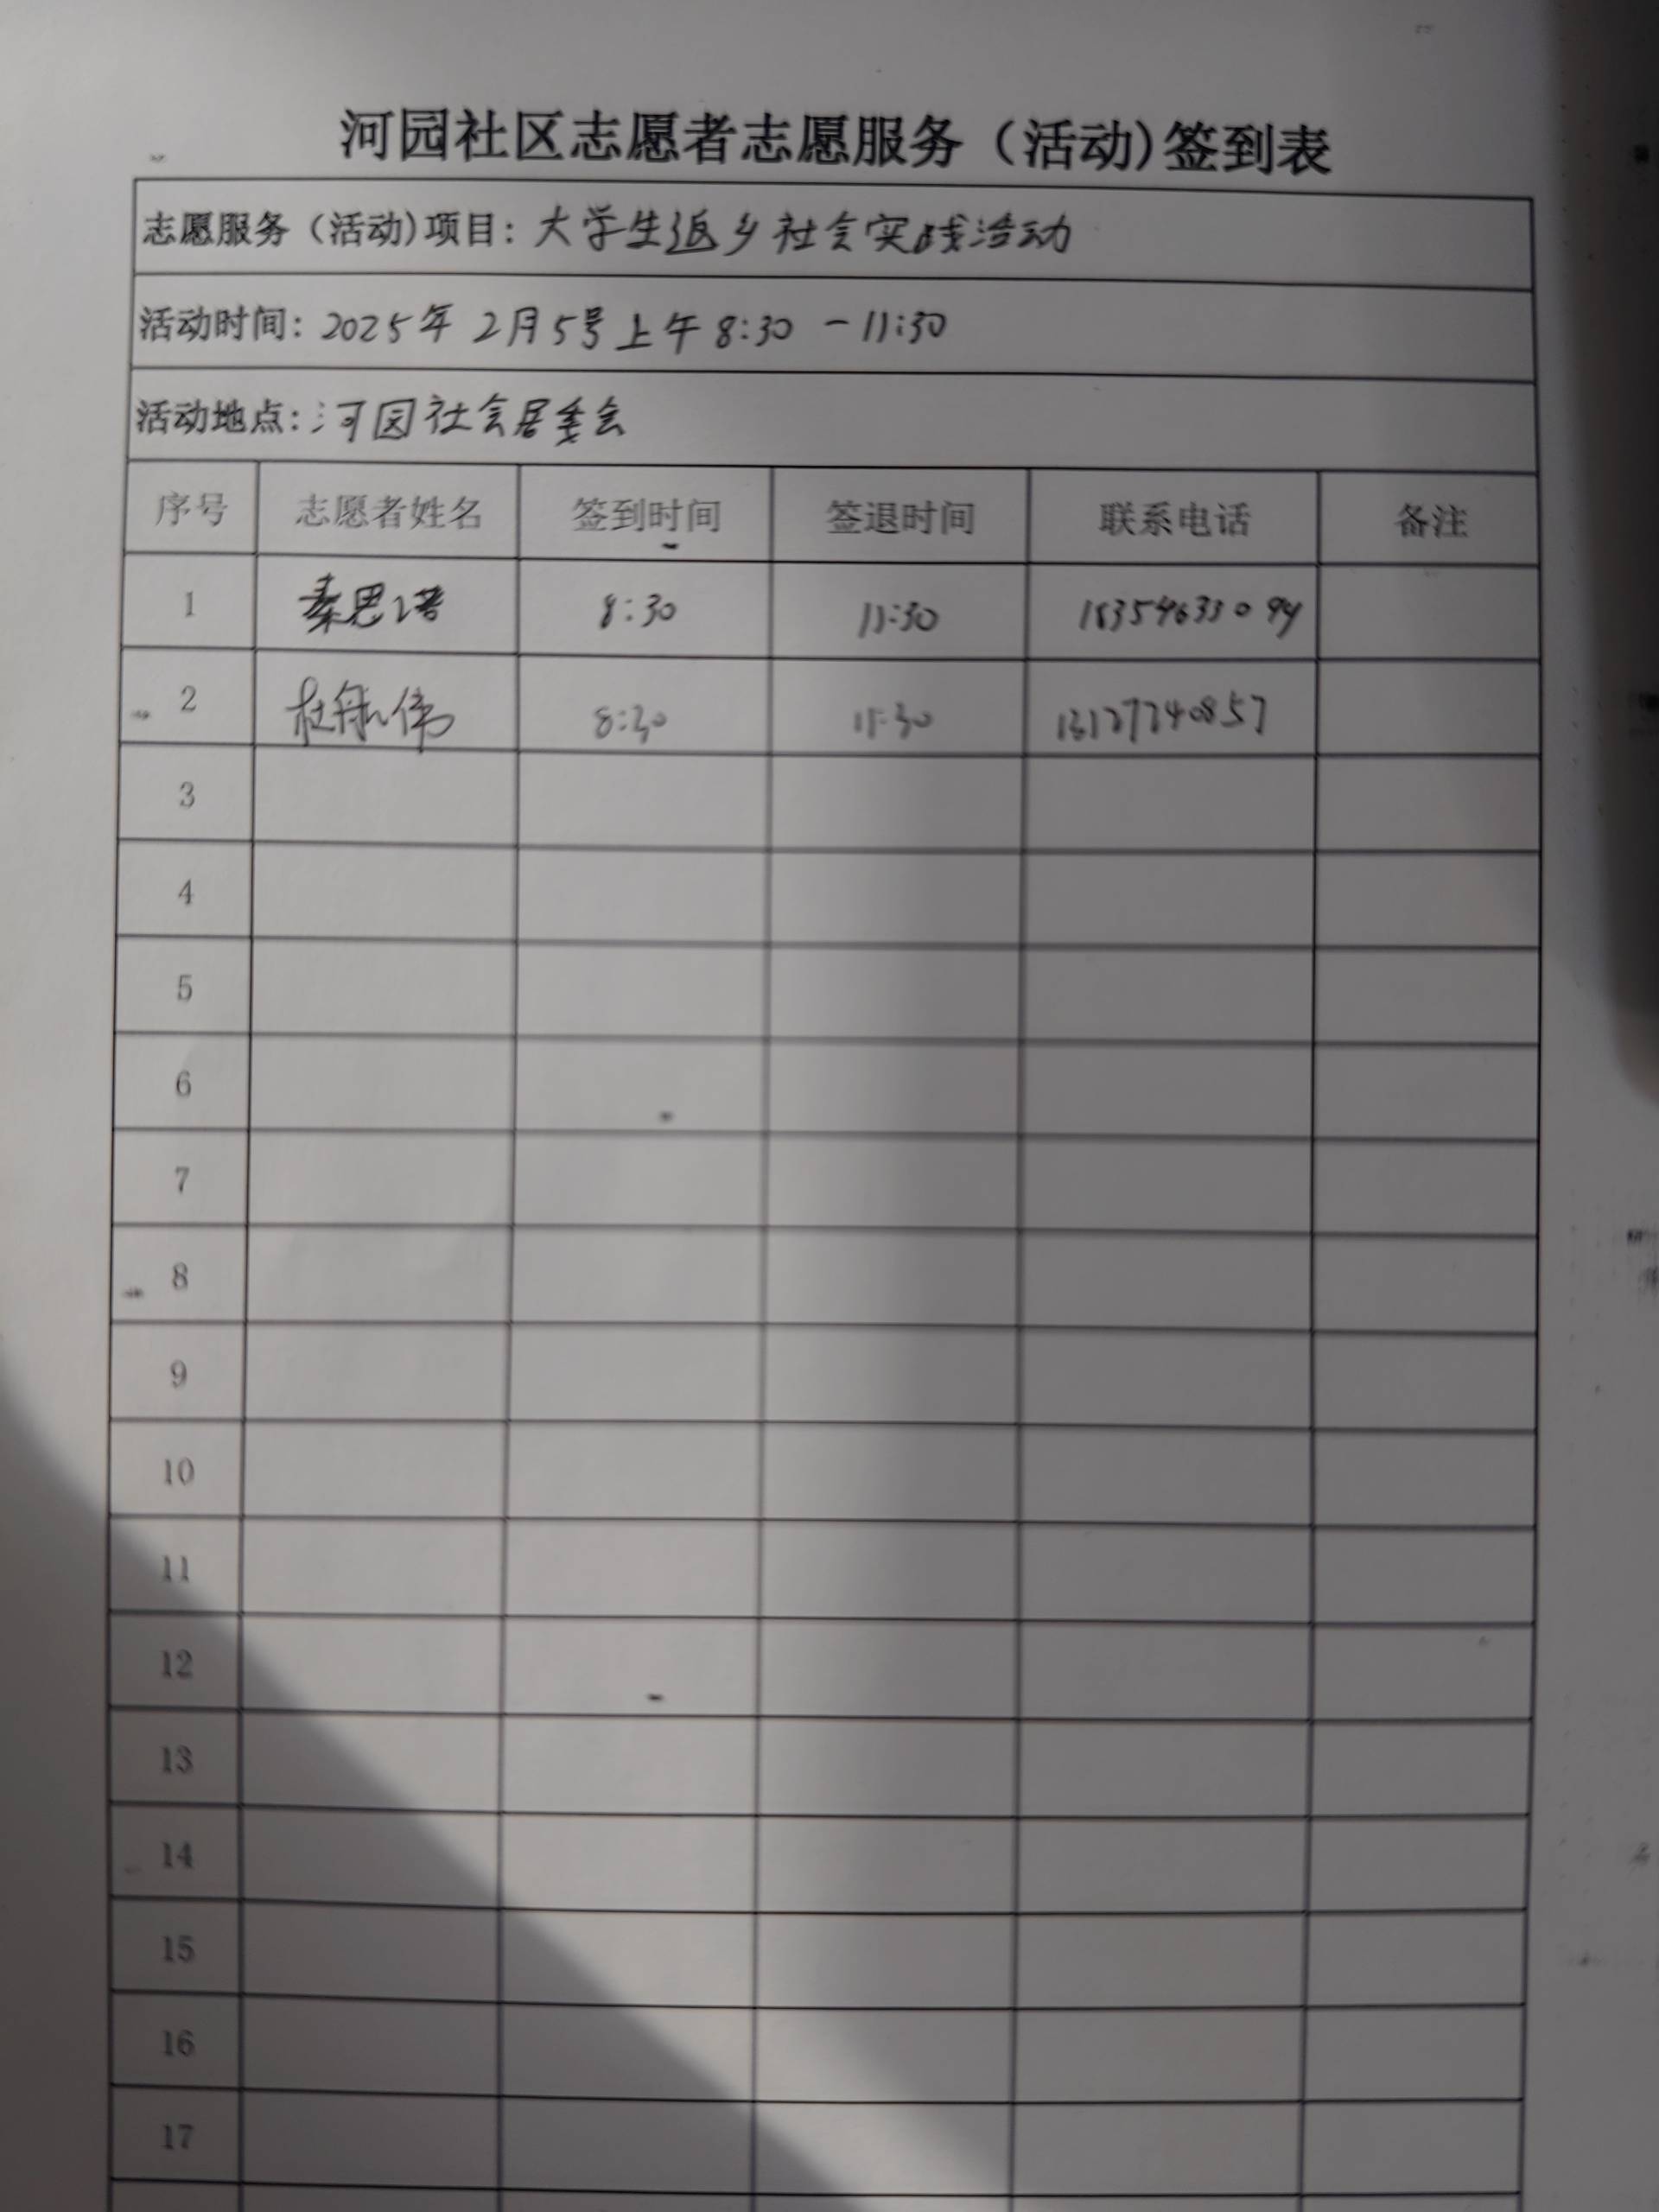 河园社区志愿者志愿服务（活动)签到表
志愿服务（活动)项目: 大学生返乡社会实践活动
活动时间: 2025年 2月5号上午8:30 -11:30
活动地点: 河园社会居委会
序号 志愿者姓名 签到时间 签退时间 联系电话 备注
1 秦思诺 8:30 11:30 18354633094
2 杜航伟 8:30 11:30 13127740857
3
4
5
6
7
8
9
10
11
12
13
14
15
16
17